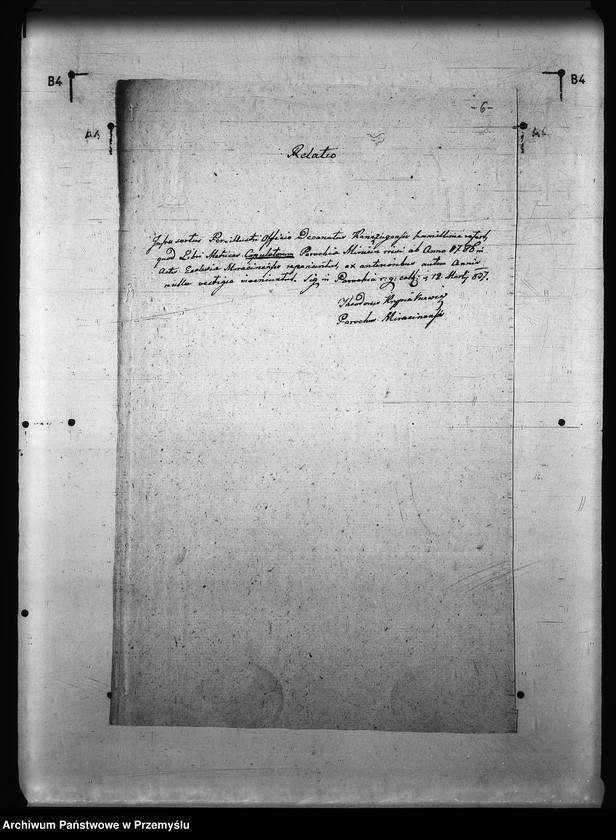 B4
B4
-6-
Relatio
Infrascriptus Perillustri Officio Decanatus Kańczugensis humillime refert,
quod Libri Metrices Copulatorum Parochia Mirocin ab Anno 1786 in
Actis Ecclesia Mirocinensis reperiuntur, ex anterioribus autem Annis
nulla vestigia inveniuntur. Sig in Parochia r: g: cath: 12 Martij
Theodorus
Parochus Mirocinensis
Archiwum Państwowe w Przemyślu